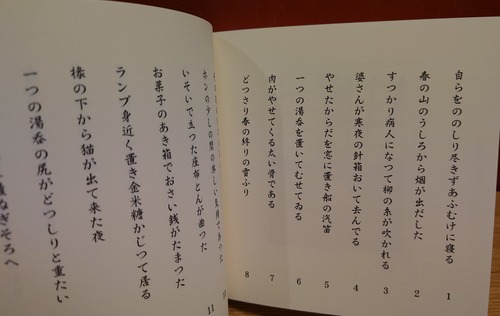 自らをののしり尽きずあふむけに寝る
1
春の山のうしろから烟が出だした
2
すつかり病人になつて柳の糸が吹かれる
3
婆さんが寒夜の針箱おいて去んでる
4
やせたからだを窓に置き船の汽笛
5
一つの湯呑を置いてむせてゐる
6
肉がやせてくる太い骨である
7
どつさり春の終りの雪ふり
8
いそいで立つた座布とんが
11
お菓子のあき箱でおさい銭がたまつた
ランプ身近く置き金米糖かじつて居る
縁の下から猫が出て来た夜
一つの湯呑の尻がどつしりと重たい
ぬぎそろへ